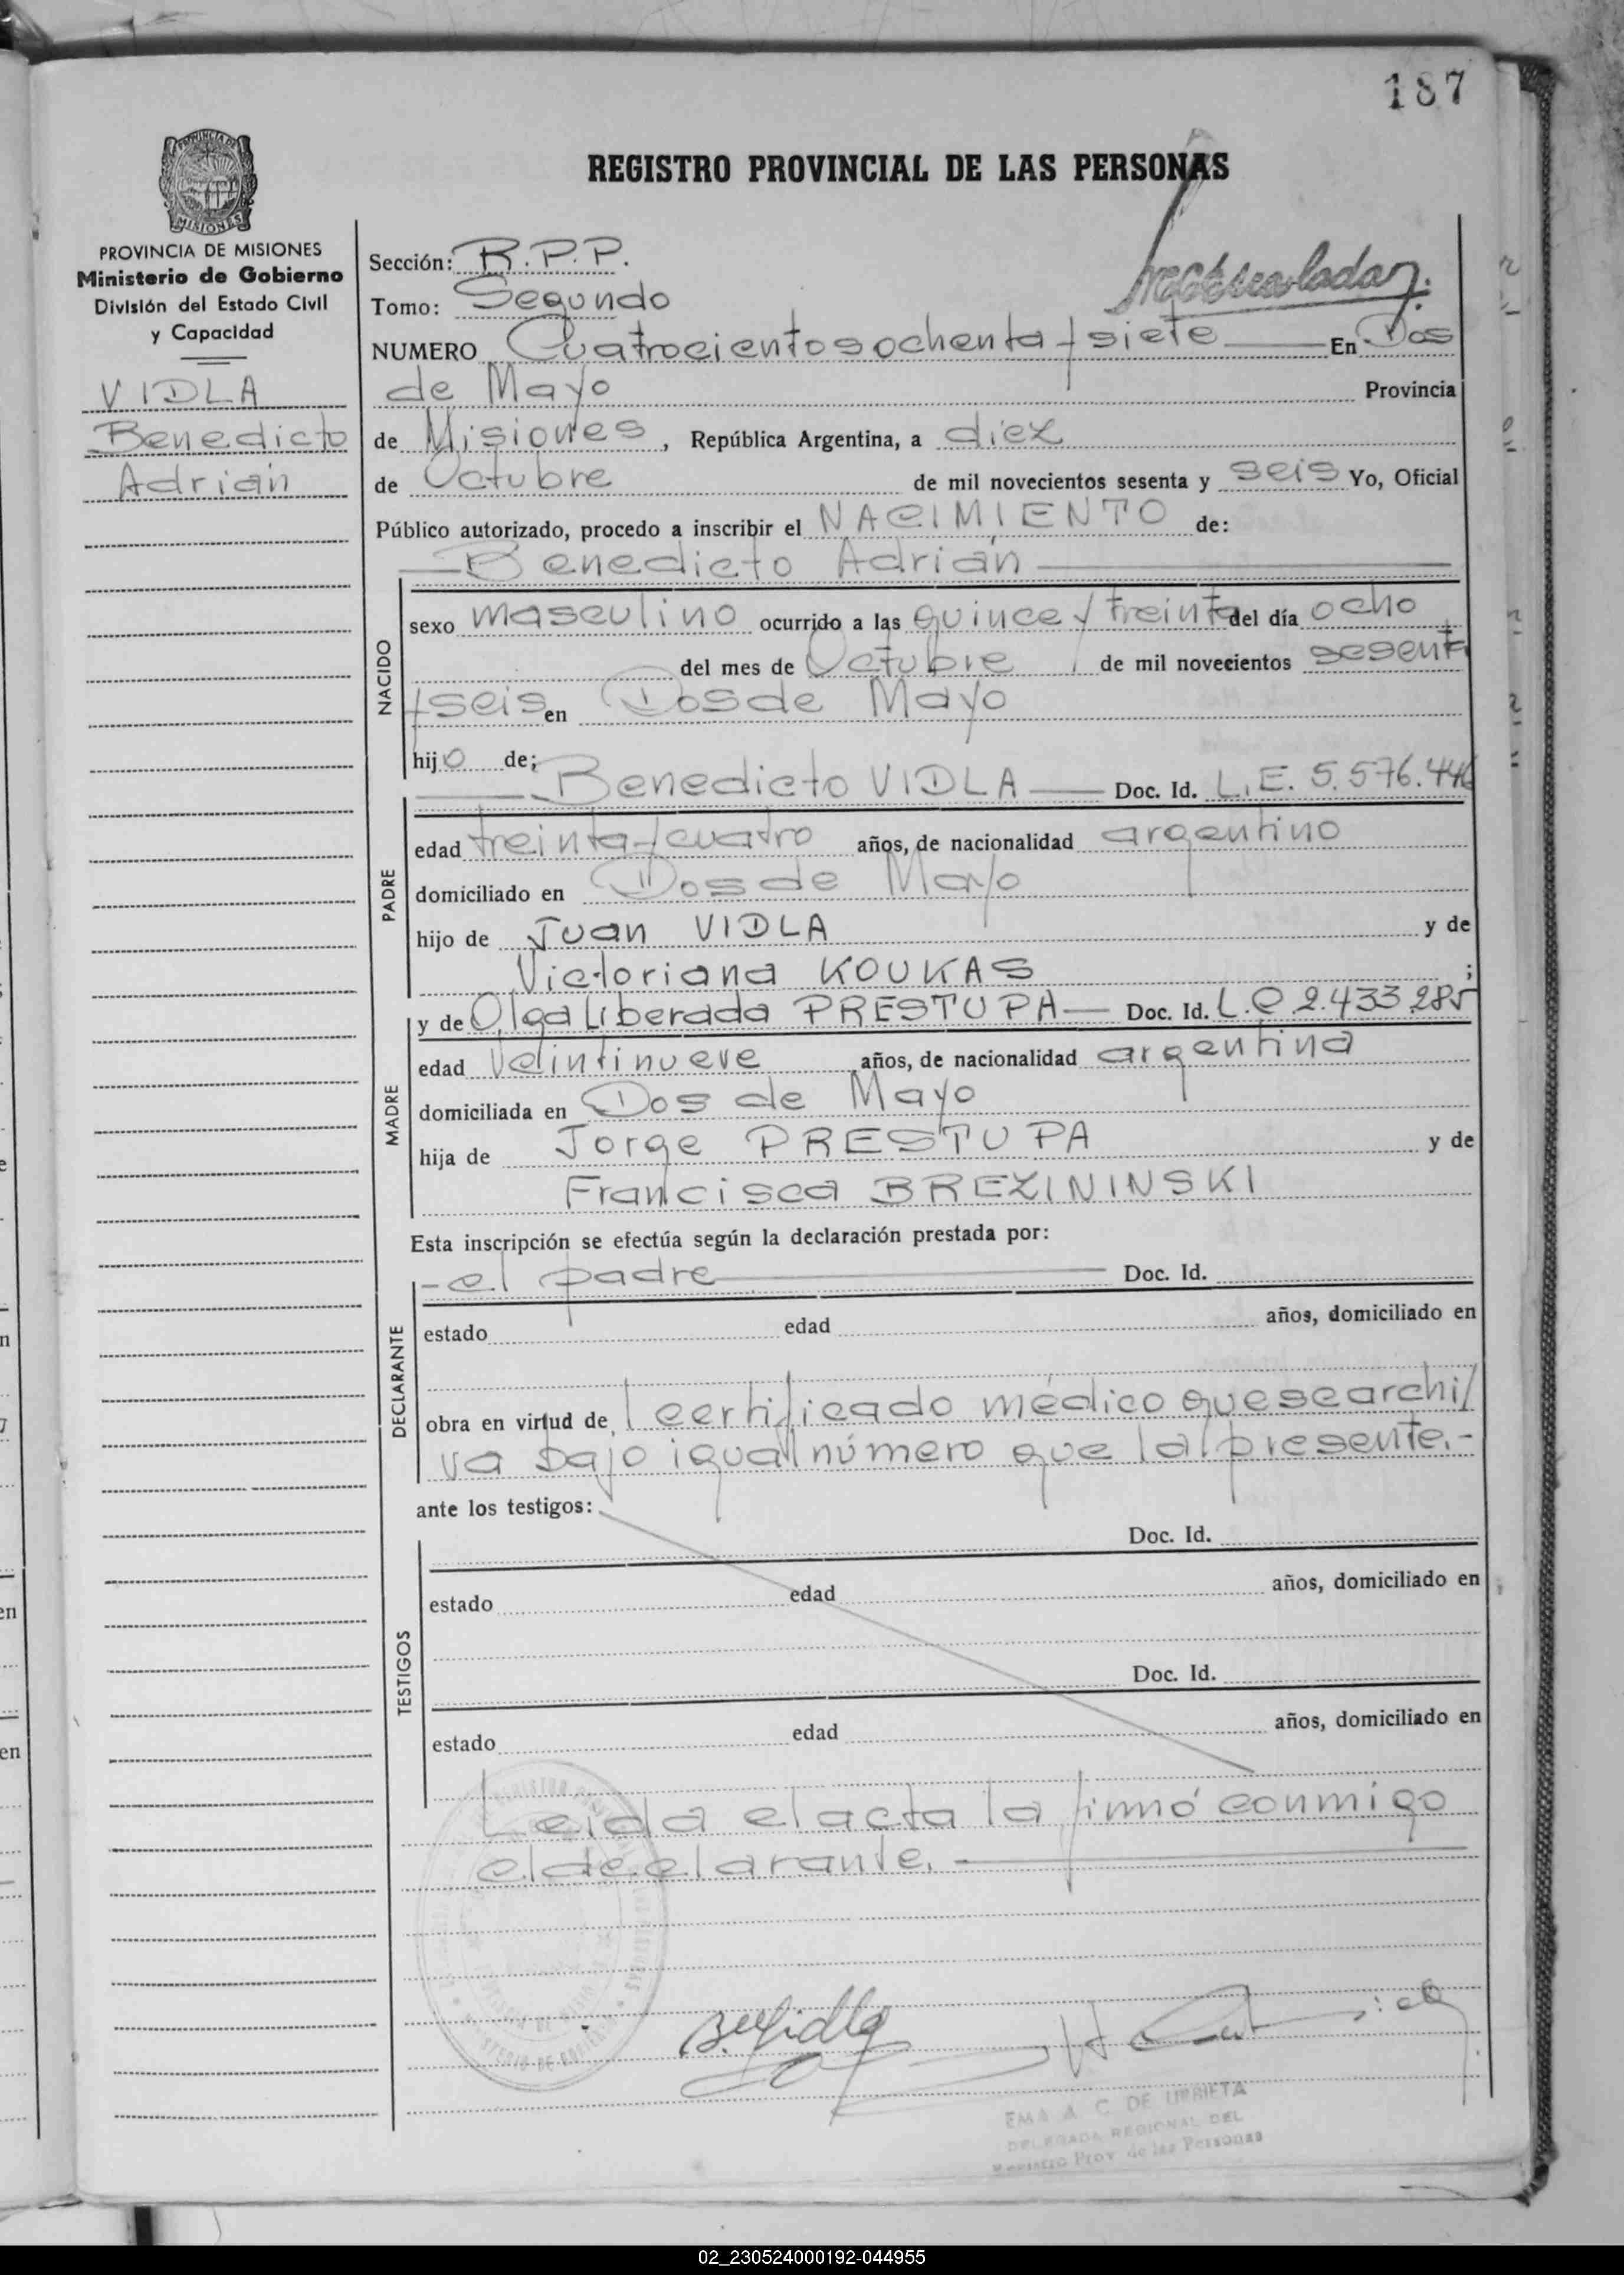 187
REGISTRO PROVINCIAL DE LAS PERSONAS
PROVINCIA DE MISIONES
Ministerio de Gobierno
División del Estado Civil
y Capacidad
VIDLA
Benedicto
Adrián
Sección: R.P.P.
Tomo: Segundo
NUMERO Cuatrocientos ochenta y siete En Dos
de Mayo Provincia
de Misiones, República Argentina, a diez
de Octubre de mil novecientos sesenta y seis Yo, Oficial
Público autorizado, procedo a inscribir el NACIMIENTO de:
Benedicto Adrián
NACIDO
sexo masculino ocurrido a las quince y treinta del día ocho
del mes de Octubre de mil novecientos sesenta
y seis en Dos de Mayo
hijo de;
Benedicto VIDLA Doc. Id. L.E. 5.576.446
PADRE
edad treinta y cuatro años, de nacionalidad argentino
domiciliado en Dos de Mayo
hijo de Juan VIDLA y de
Victoriana KOUKAS ;
y de Olga Liberada PRESTUPA Doc. Id. L.C 2.433.285
MADRE
edad veintinueve años, de nacionalidad argentina
domiciliada en Dos de Mayo
hija de Jorge PRESTUPA y de
Francisca BREZININSKI
Esta inscripción se efectúa según la declaración prestada por:
DECLARANTE
- el padre Doc. Id.
estado edad años, domiciliado en
obra en virtud de l certificado médico que se archi/
va bajo igual número que la presente.-
ante los testigos:
TESTIGOS
Doc. Id.
estado edad años, domiciliado en
Doc. Id.
estado edad años, domiciliado en
Leida el acta la firmó conmigo
el declarante.-
B. Vidla
EMA A C DE URRIETA
DELEGADA REGIONAL DEL
Registro Prov de las Personas
02_230524000192-044955